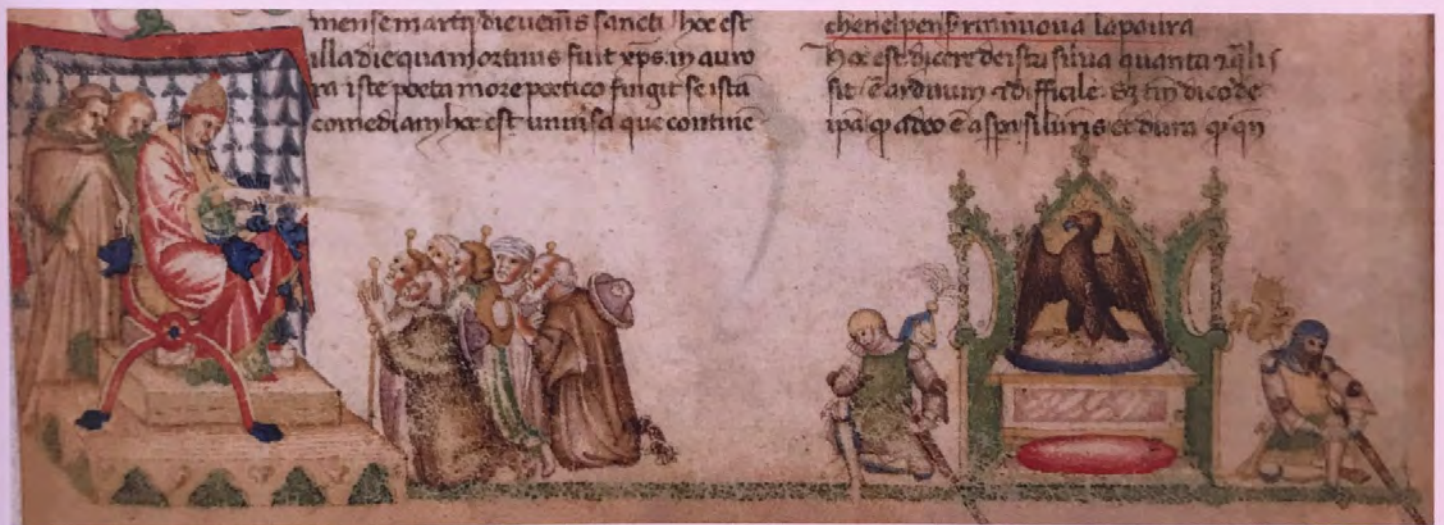 mense martij die ueneris sancti hoc est
illa die qua mortuus fuit xps. in auro
ra iste poeta more poetico fingit se istā
comediam hoc est uniuersa que contine
che nel penser rinnoua la paura
hoc est dicere de ista silua quanta
sit ē arduum difficile dico de
ē dura